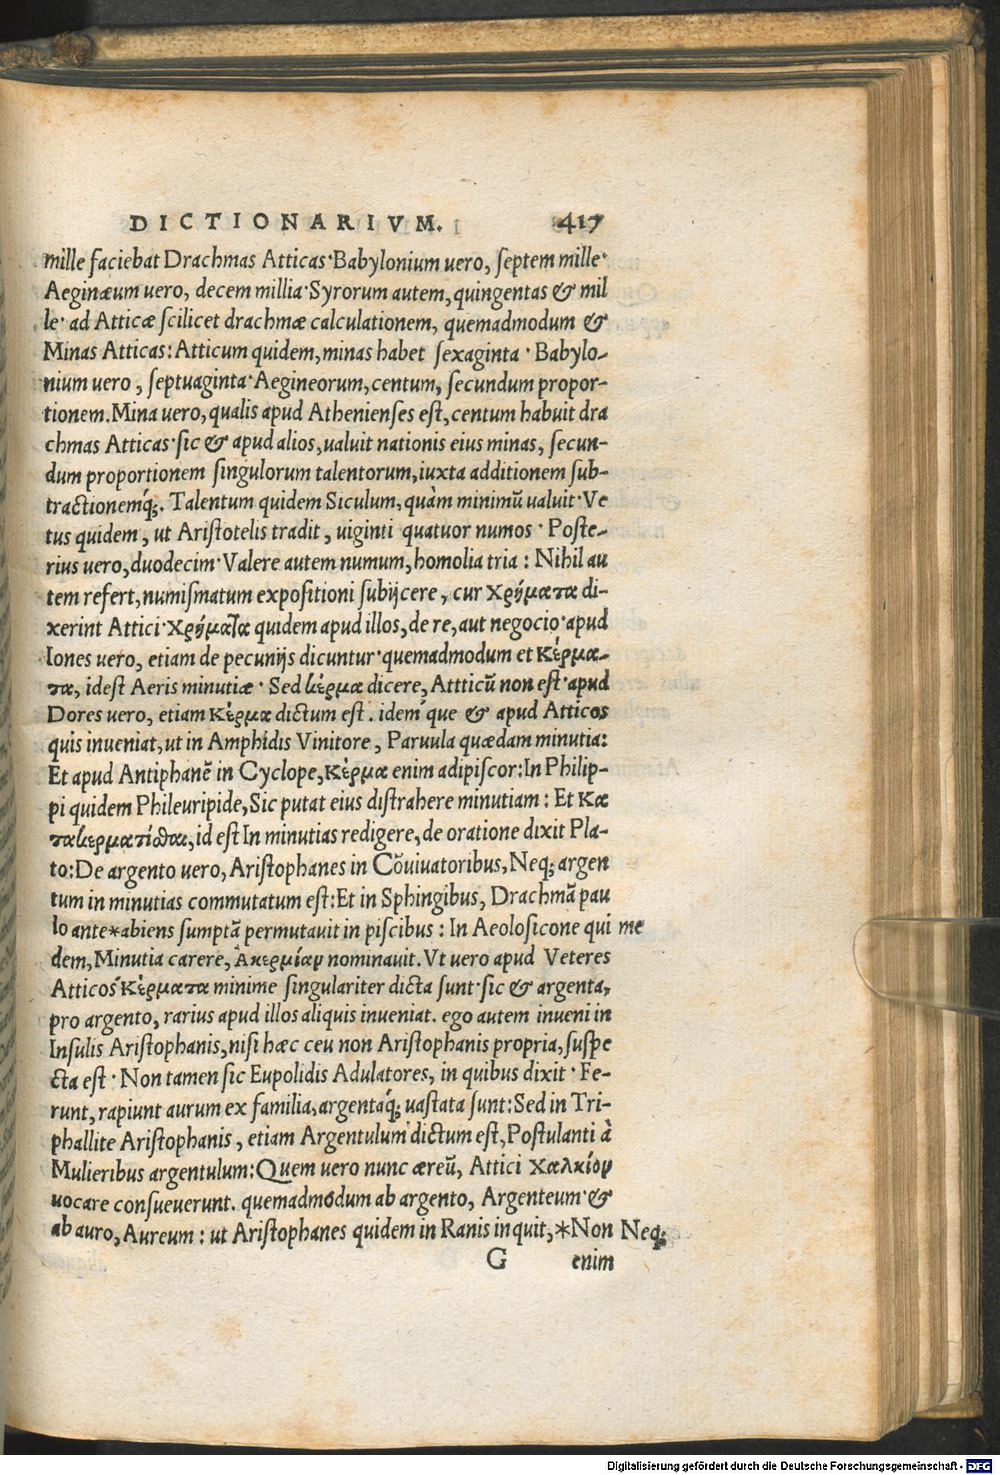 DICTIONARIVM. 417
mille faciebat Drachmas Atticas·Babylonium uero, ſeptem mille·
Aeginæum uero, decem millia·Syrorum autem, quingentas & mil
le· ad Atticæ ſcilicet drachmæ calculationem, quemadmodum &
Minas Atticas: Atticum quidem, minas habet ſexaginta · Babylo-
nium uero, ſeptuaginta·Aegineorum, centum, ſecundum propor-
tionem. Mina uero, qualis apud Athenienſes eſt, centum habuit dra
chmas Atticas·ſic & apud alios, ualuit nationis eius minas, ſecun-
dum proportionem ſingulorum talentorum, iuxta additionem ſub-
tractionemq́;. Talentum quidem Siculum, quàm minimū ualuit·Ve
tus quidem, ut Ariſtotelis tradit, uiginti quatuor numos · Poſte-
rius uero, duodecim·Valere autem numum, homolia tria: Nihil au
tem refert, numiſmatum expoſitioni ſubijcere, cur χρήματα di-
xerint Attici·χρήματα quidem apud illos, de re, aut negocio·apud
Iones uero, etiam de pecunijs dicuntur·quemadmodum et κέρμα-
τα, ideſt Aeris minutiæ · Sed κέρμα dicere, Attticū non eſt·apud
Dores uero, etiam κέρμα dictum eſt. idem que & apud Atticos
quis inueniat, ut in Amphidis Vinitore, Paruula quædam minutia:
Et apud Antiphanē in Cyclope, κέρμα enim adipiſcor: In Philip-
pi quidem Phileuripide, Sic putat eius diſtrahere minutiam: Et κα
τακερματίσθαι, id eſt In minutias redigere, de oratione dixit Pla-
to: De argento uero, Ariſtophanes in Cōuiuatoribus, Neq; argen
tum in minutias commutatum eſt: Et in Sphingibus, Drachmā pau
lo ante*abiens ſumptā permutauit in piſcibus: In Aeoloſicone qui me
dem, Minutia carere, Ἀκερμίαν nominauit. Vt uero apud Veteres
Atticos κέρματα minime ſingulariter dicta ſunt·ſic & argenta,
pro argento, rarius apud illos aliquis inueniat. ego autem inueni in
Inſulis Ariſtophanis, niſi hæc ceu non Ariſtophanis propria, ſuſpe
cta eſt · Non tamen ſic Eupolidis Adulatores, in quibus dixit · Fe-
runt, rapiunt aurum ex familia, argentaq́; uaſtata ſunt: Sed in Tri-
phallite Ariſtophanis, etiam Argentulum dictum eſt, Poſtulanti à
Mulieribus argentulum: Quem uero nunc æreū, Attici χαλκίον
uocare conſueuerunt. quemadmodum ab argento, Argenteum·&
ab auro, Aureum: ut Ariſtophanes quidem in Ranis inquit, *Non Neq;
G enim
Digitalisierung gefördert durch die Deutsche Forschungsgemeinschaft - DFG